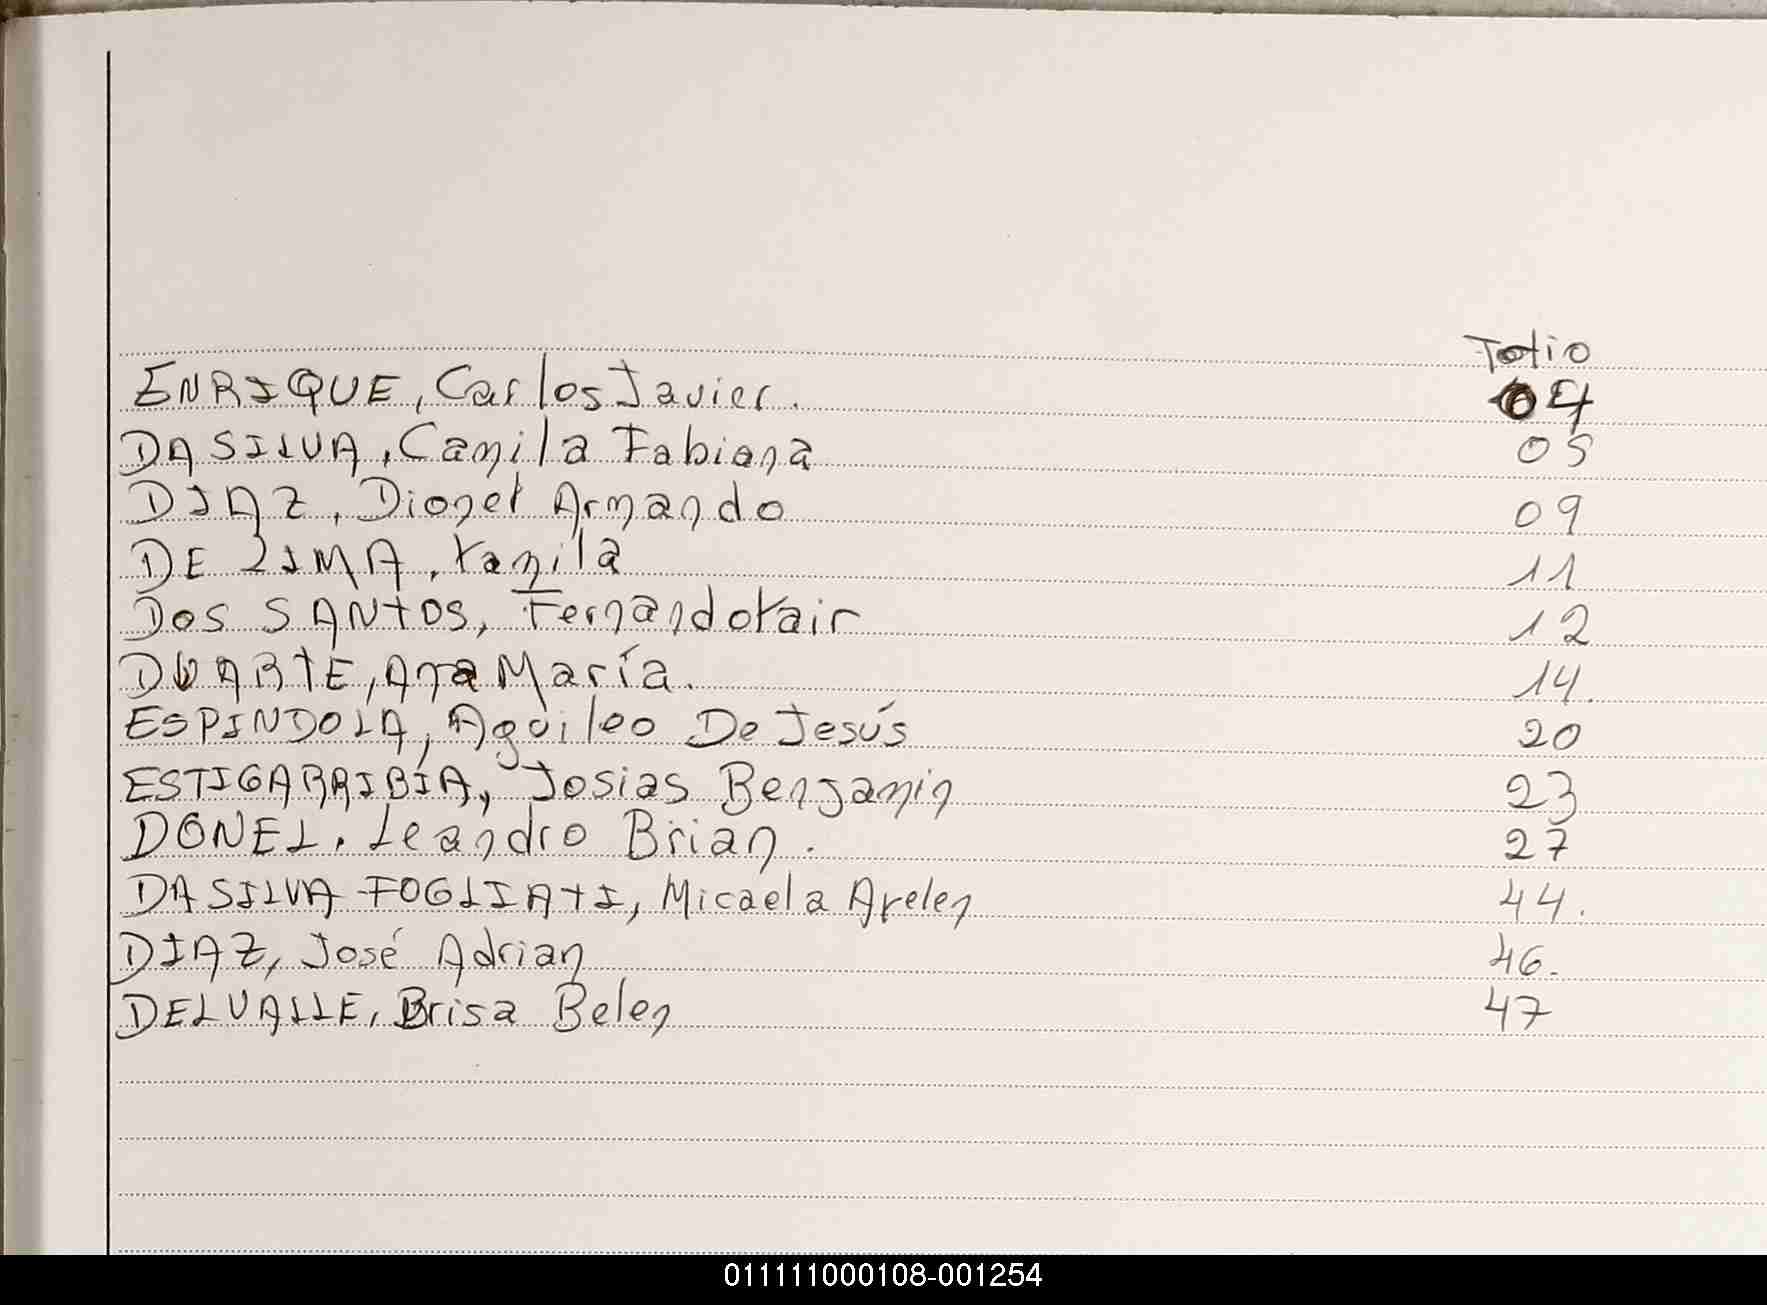 Folio
ENRIQUE, Carlos Javier. 04
DA SILVA, Camila Fabiana 05
DIAZ, Dionel Armando 09
DE LIMA, Yamila 11
DOS SANTOS, Fernando Yair 12
DUARTE, Ana María. 14.
ESPINDOLA, Aguileo De Jesús 20
ESTIGARRIBIA, Josias Benjamin 23
DONEL, Leandro Brian. 27
DA SILVA FOGLIATI, Micaela Ayelen 44.
DIAZ, José Adrian 46.
DELVALLE, Brisa Belen 47
011111000108-001254